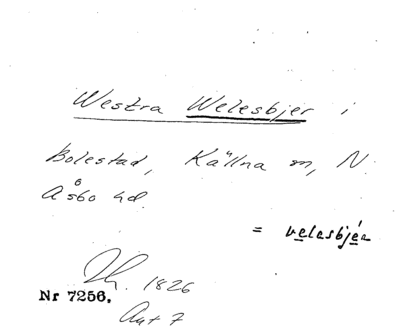 Westra Welesbjer i
Bolestad, Källna sn, N.
Åsbo hd.
= velesbjér
1826
Nr 7256.
Akt 7